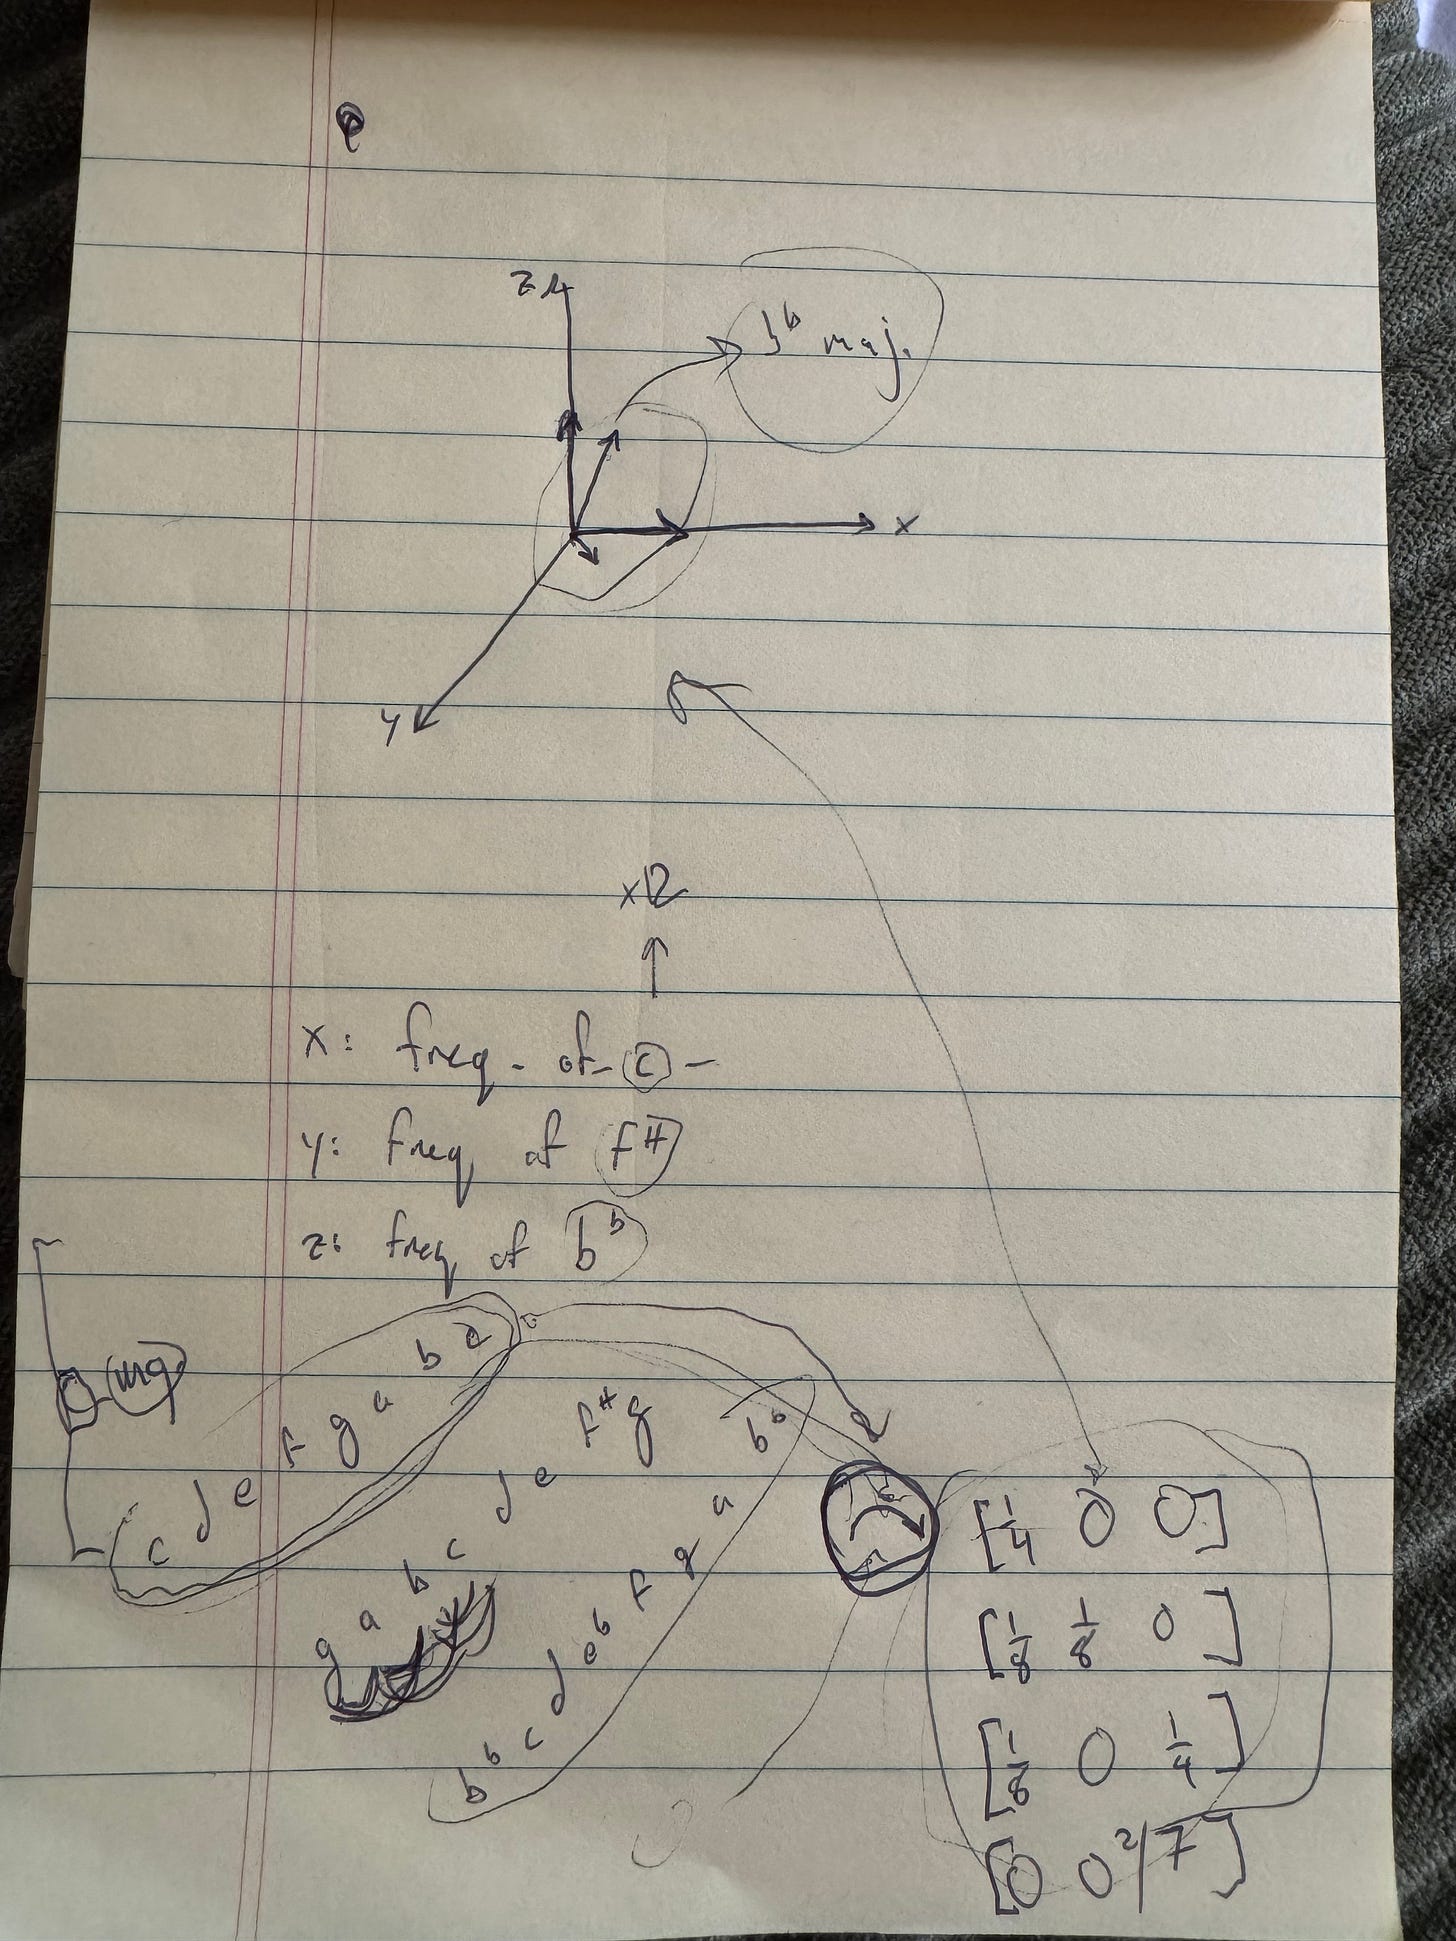 z
b♭ maj.
x
y
x12
x: freq. of c
y: freq of f#
z: freq of b♭
c d e f g a b
g a b c d e f# g
b♭ c d e♭ f g a b♭
[1/4 0 0]
[1/8 1/8 0]
[1/8 0 1/4]
[0 0 2/7]